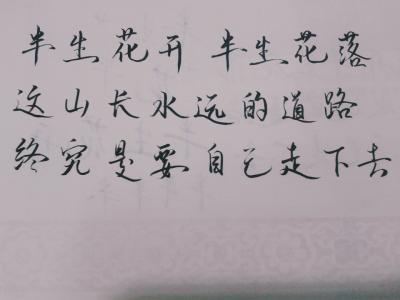 半生花开 半生花落
这山长水远的道路
终究是要自己走下去